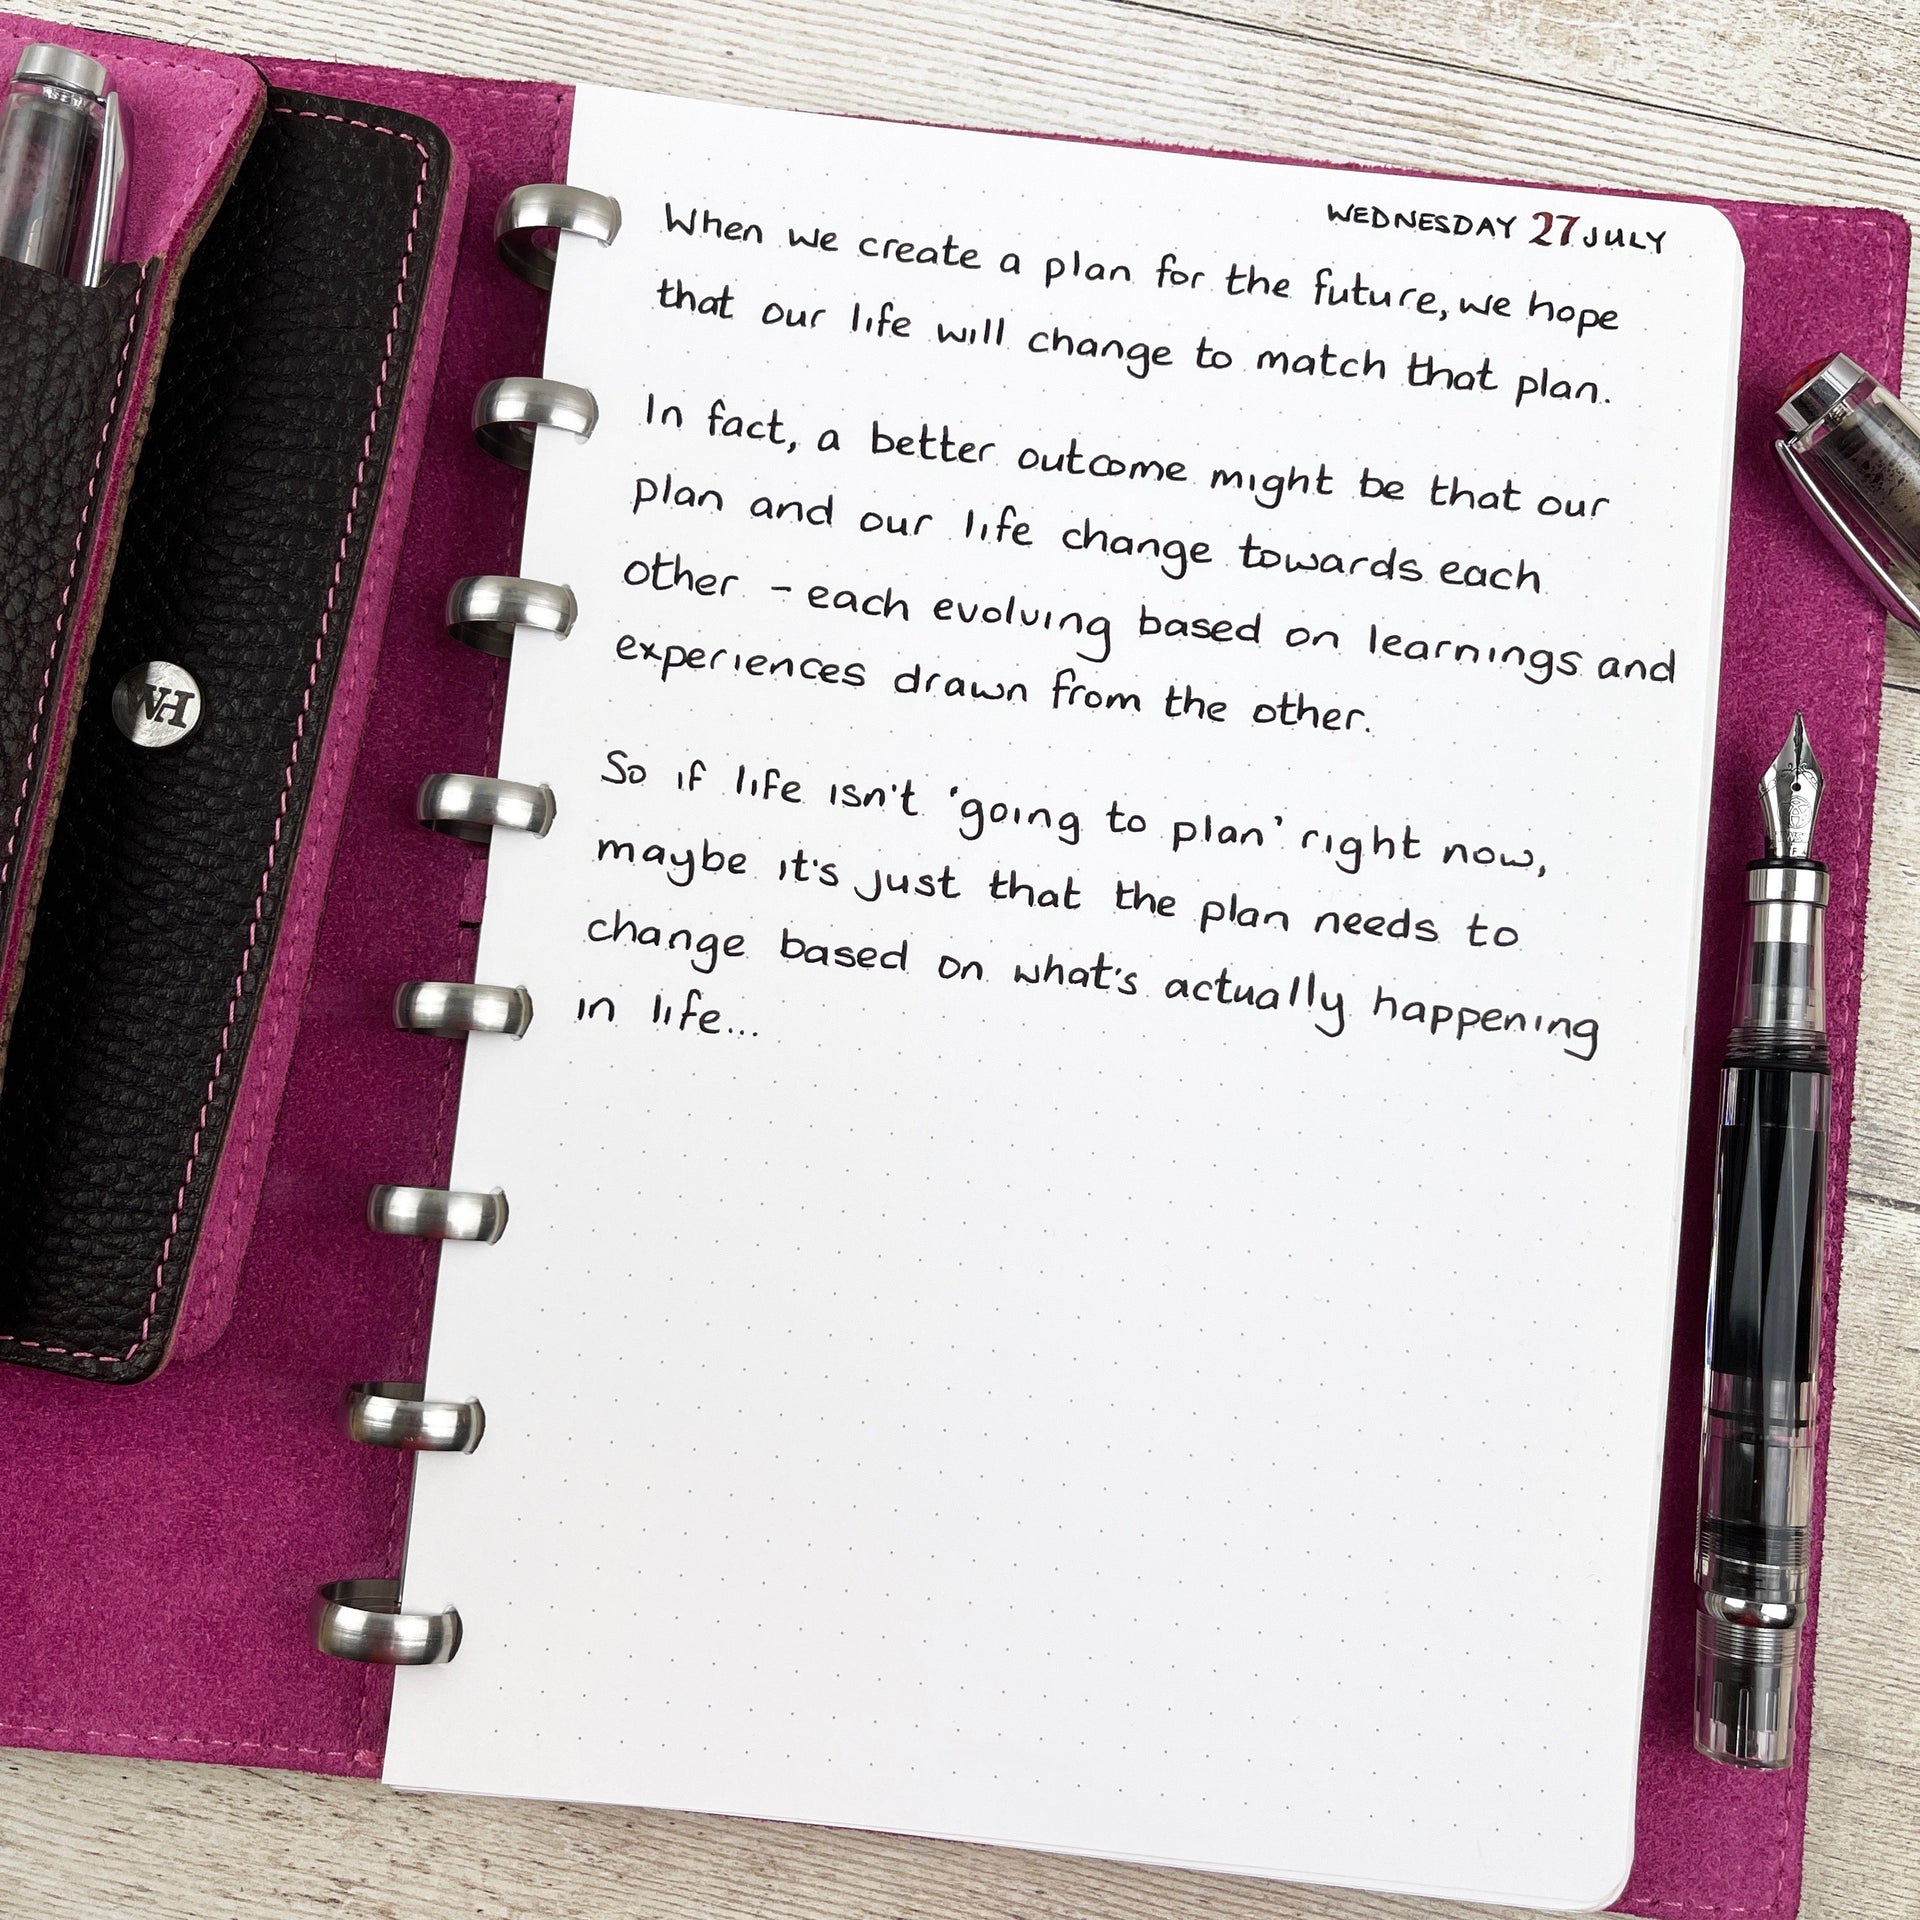 WEDNESDAY 27 JULY
When we create a plan for the future, we hope
that our life will change to match that plan.
In fact, a better outcome might be that our
plan and our life change towards each
other - each evolving based on learnings and
experiences drawn from the other.
So if life isn't 'going to plan' right now,
maybe it's just that the plan needs to
change based on what's actually happening
in life...